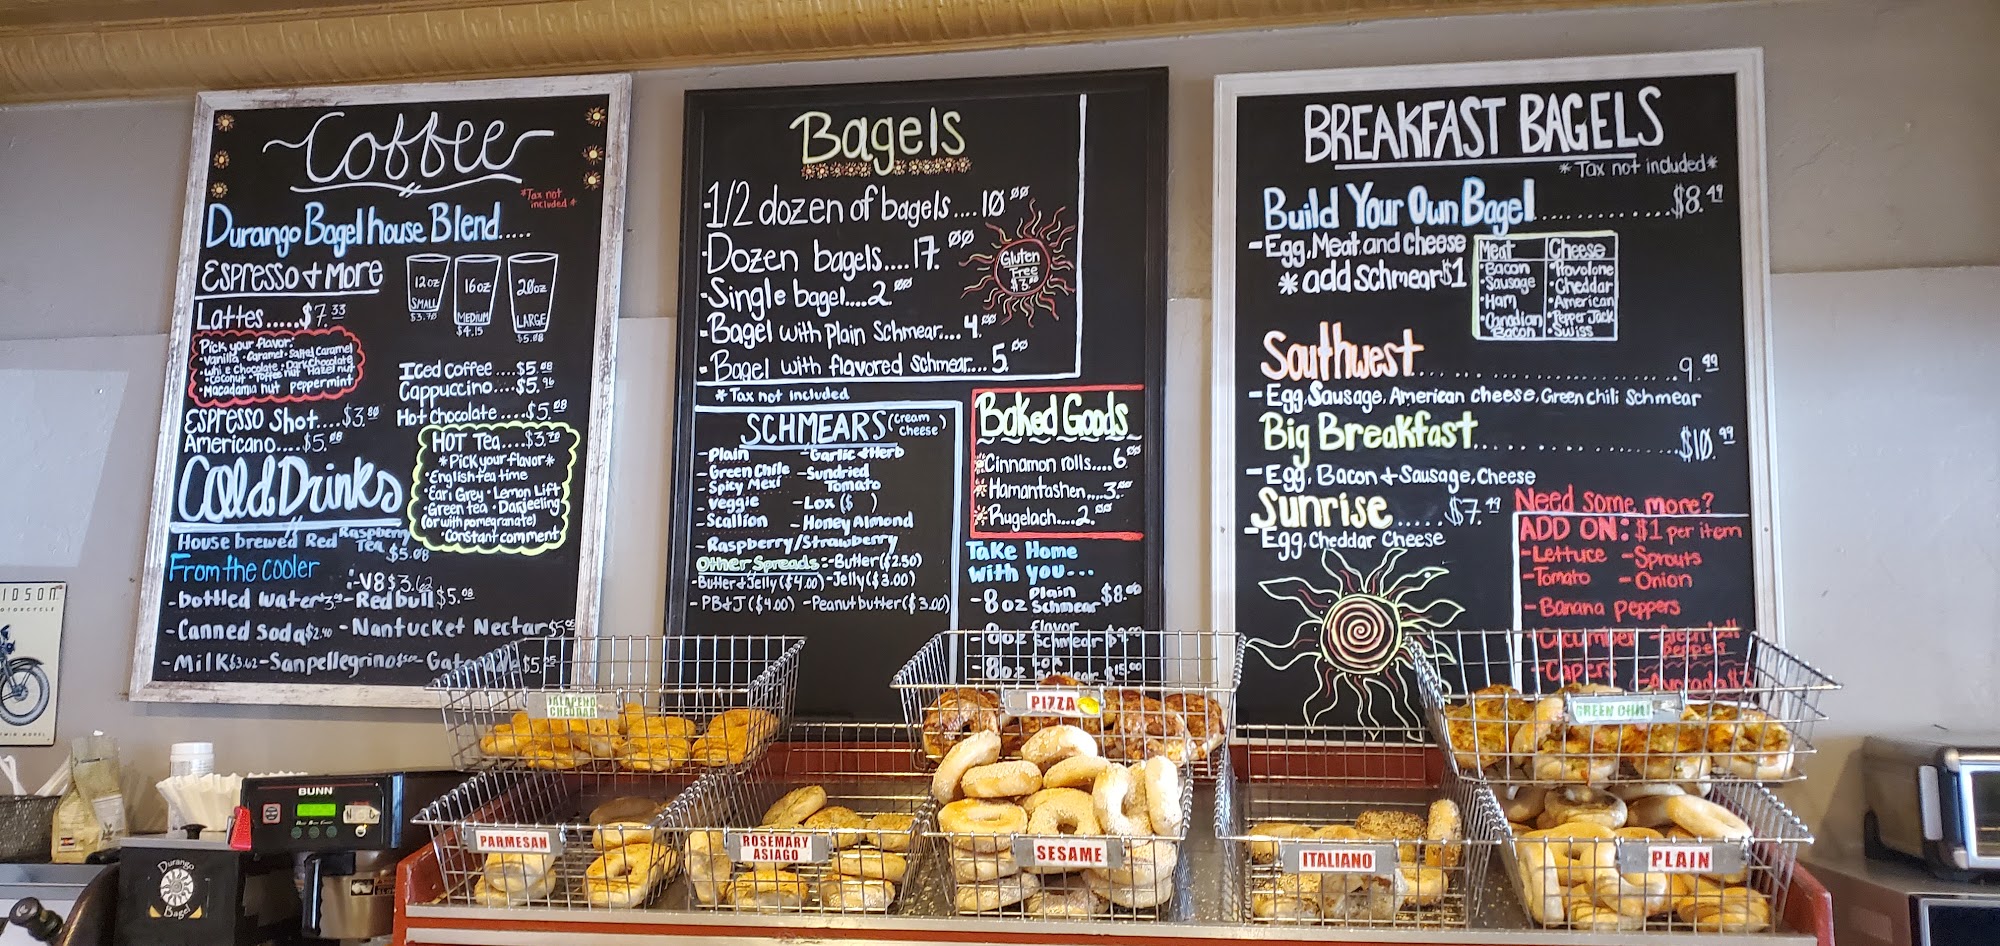 Coffee
*Tax not
included*
Durango Bagelhouse Blend.....
Espresso + More
12oz
SMALL
$3.70
16oz
MEDIUM
$4.15
20oz
LARGE
$5.08
Lattes......$7.33
Pick your flavor:
•Vanilla •Caramel •Salted Caramel
•Whi e Chocolate •Dark Chocolate
•Coconut •Toffee nut Hazel nut
•Macadamia nut peppermint
Espresso Shot....$3.80
Americano.....$5.08
Iced Coffee ....$5.08
Cappuccino....$5.96
Hot Chocolate ....$5.08
HOT Tea....$3.70
*Pick your flavor*
•English tea time
•Earl Grey •Lemon Lift
•Green tea •Darjeeling
(or with pomegranate)
•Constant comment
Cold Drinks
House brewed Red Raspberry
Tea $5.08
From the cooler
-V8 $3.62
-bottled water -Redbull $5.08
-Canned Soda $2.40 -Nantucket Nectar
-Milk $3.62 -Sanpellegrino
Bagels
-1/2 dozen of bagels....10.00
-Dozen bagels....17.00
-Single bagel....2.00
-Bagel with plain Schmear....4.00
-Bagel with flavored schmear....5.00
Gluten
Free
$3.00
*Tax not included
SCHMEARS (cream
cheese)
-Plain -Garlic & Herb
-Green Chile -Sundried
Tomato
-Spicy Mexi
-Veggie -Lox ($ )
-Scallion -Honey Almond
-Raspberry/Strawberry
Other Spreads:-Butter($2.50)
-Butter & Jelly ($4.00) -Jelly ($3.00)
-PB & J ($4.00) -Peanut butter ($3.00)
Baked Goods
Cinnamon rolls....6.00
Hamantashen....3.00
Rugelach....2.00
Take Home
With you...
-8oz Plain
Schmear $8.00
-8oz flavor
Schmear
-8oz Lox
Schmear $15.00
BREAKFAST BAGELS
*Tax not included*
Build Your Own Bagel............$8.49
-Egg, Meat, and Cheese
*add schmear $1
Meat Cheese
•Bacon •Provolone
•Sausage •Cheddar
•Ham •American
•Canadian
Bacon •Pepper Jack
•Swiss
Southwest..................9.99
-Egg, Sausage, American cheese, Green chili Schmear
Big Breakfast..............$10.99
-Egg, Bacon + Sausage, Cheese
Sunrise.....$7.49
-Egg, Cheddar Cheese
Need some more?
ADD ON: $1 per item
-Lettuce -Sprouts
-Tomato -Onion
-Banana peppers
-Cucumber
-Capers -Avocado
JALAPENO
CHEDDAR
PIZZA
GREEN CHILI
PARMESAN
ROSEMARY
ASIAGO
SESAME
ITALIANO
PLAIN
BUNN
Durango
Bagel